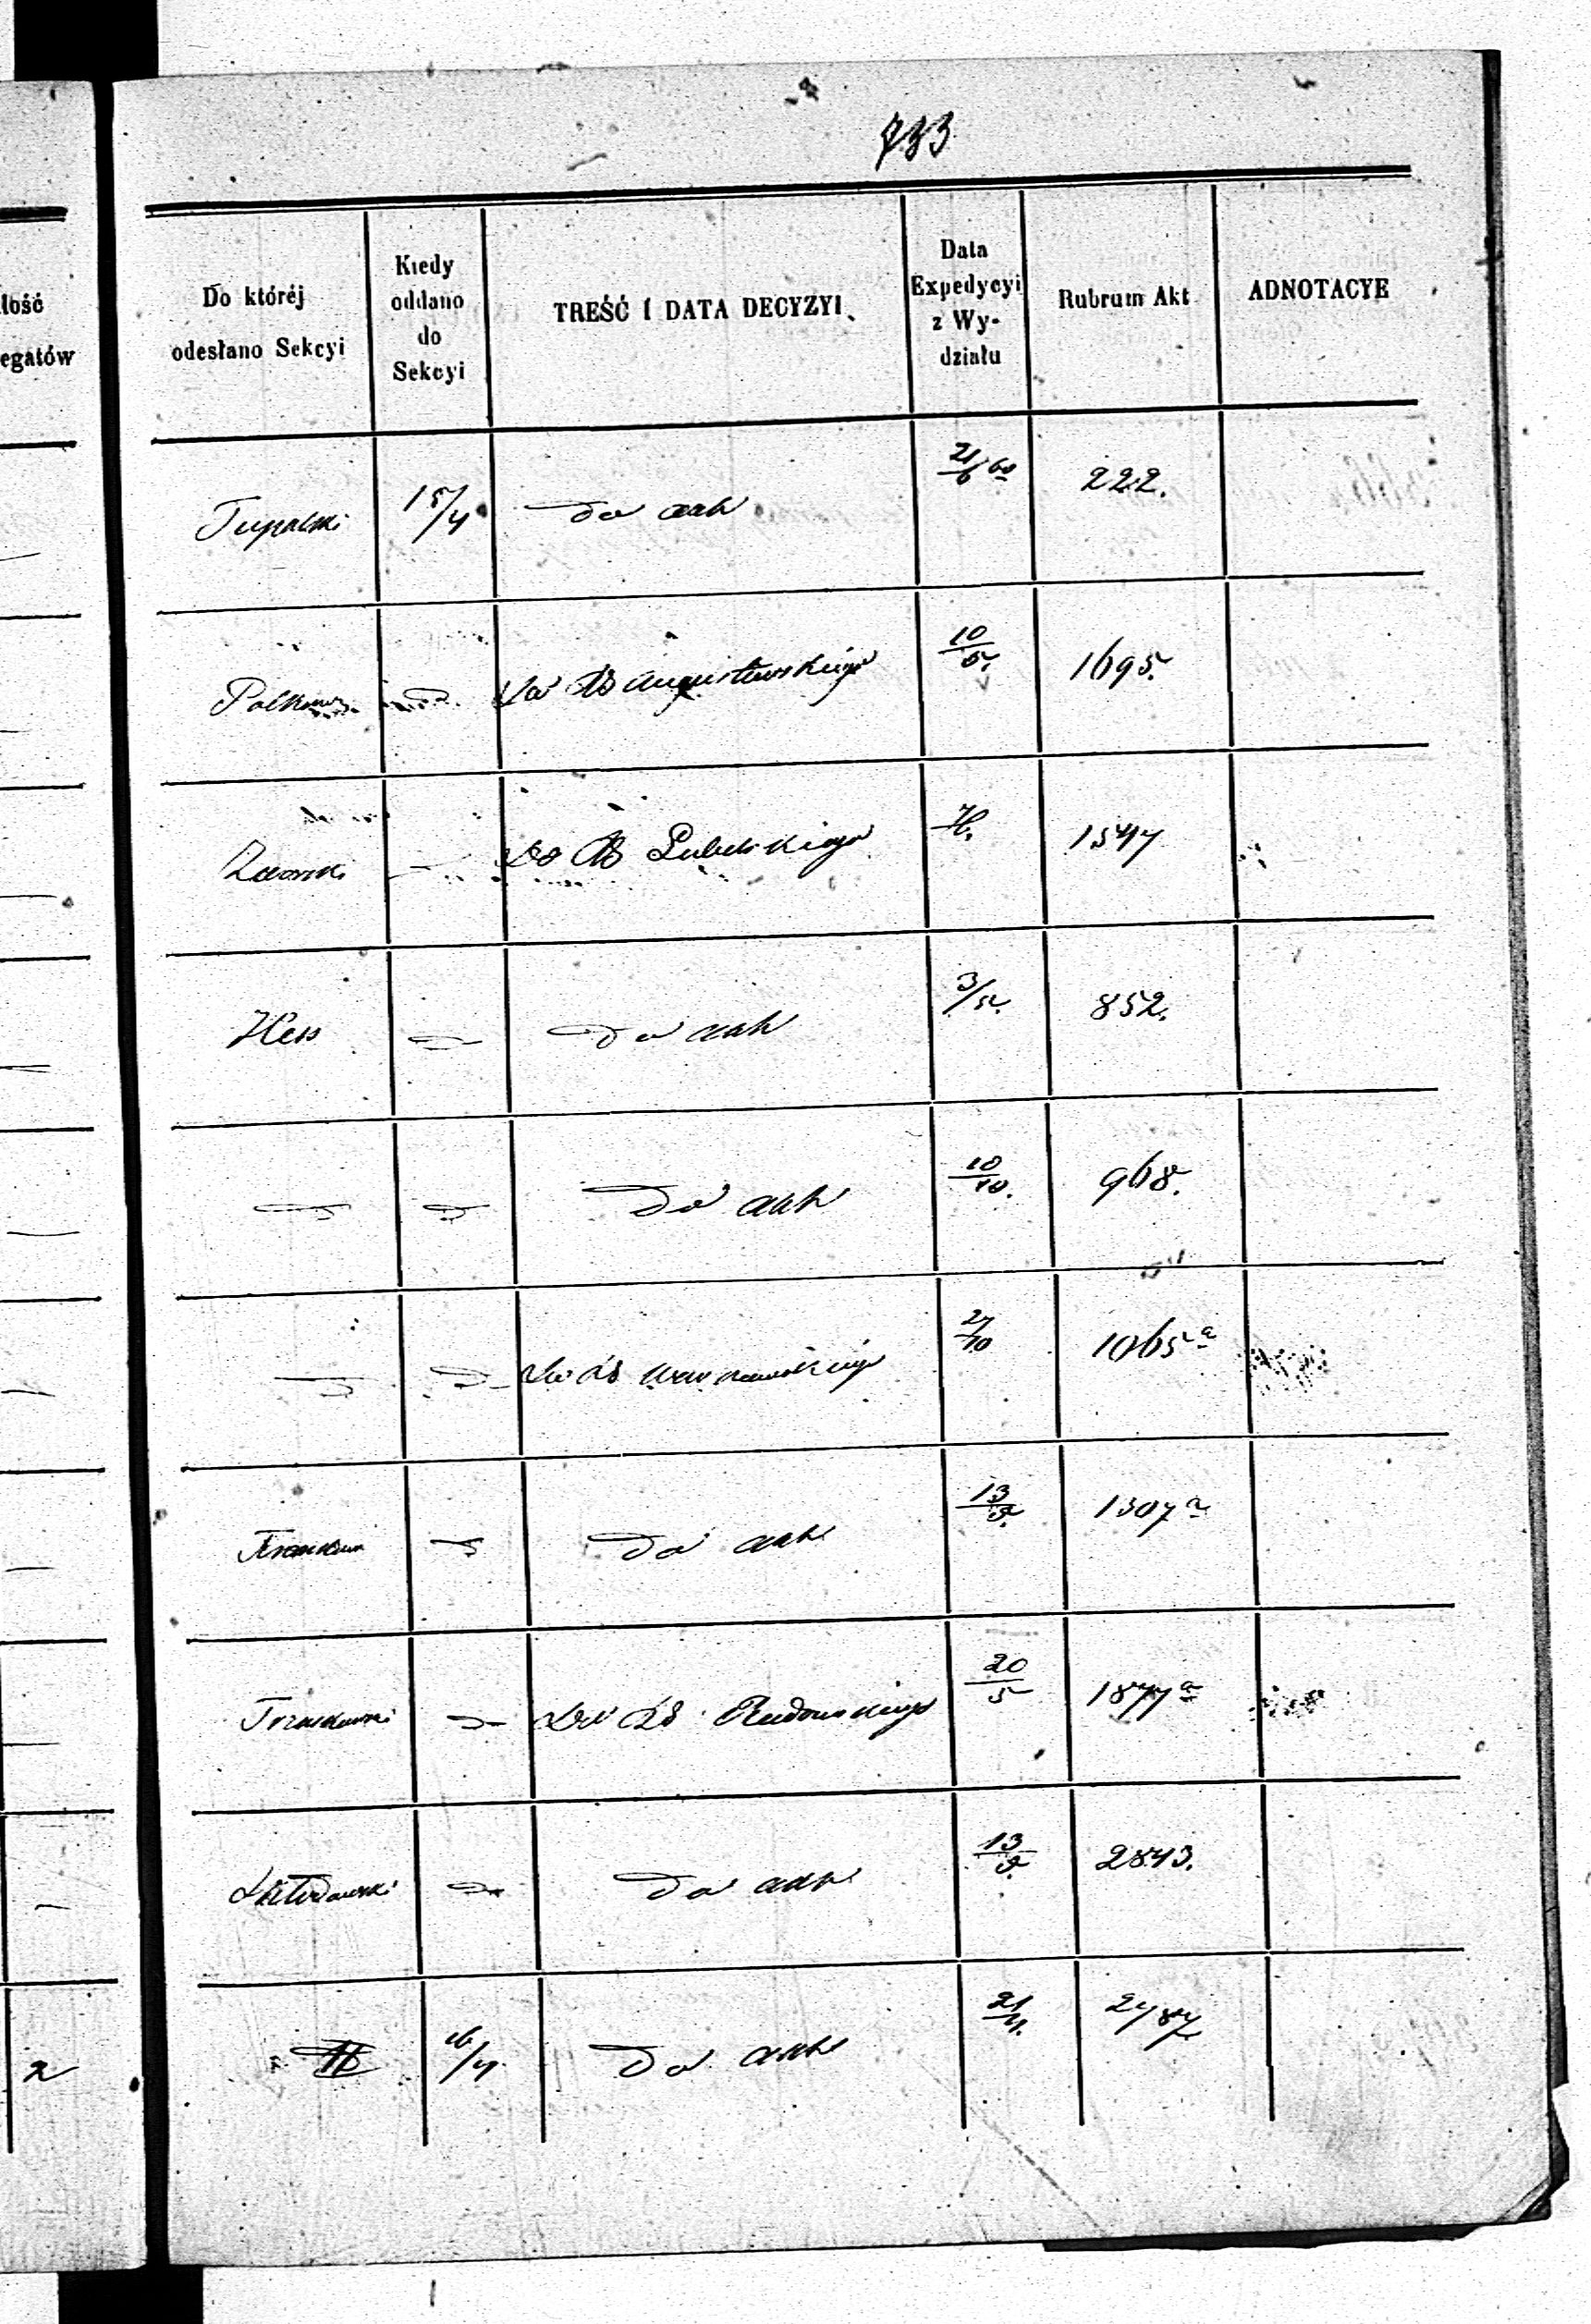 733
ilość
egatów
Do któréj odesłano Sekcyi
Kiedy oddano do Sekcyi
TREŚĆ I DATA DECYZYI
Data Expedycyi z Wydziału
Rubrum Akt
ADNOTACYE
Tupalski 15/4 Do akt 21/6 60 222.
Do Augustowskiego 10/5. 1695.
Do Lubelskiego 1547
Hess Do akt 3/5. 852.
Do akt 10/10. 968.
Do Warszawskiego 27/10 1065 a
Do akt 13/9. 1307 a
Do Radomskiego 20/5 1877 a
Do akt 13/9. 2843.
2 16/4 Do akt 21/4. 2787.